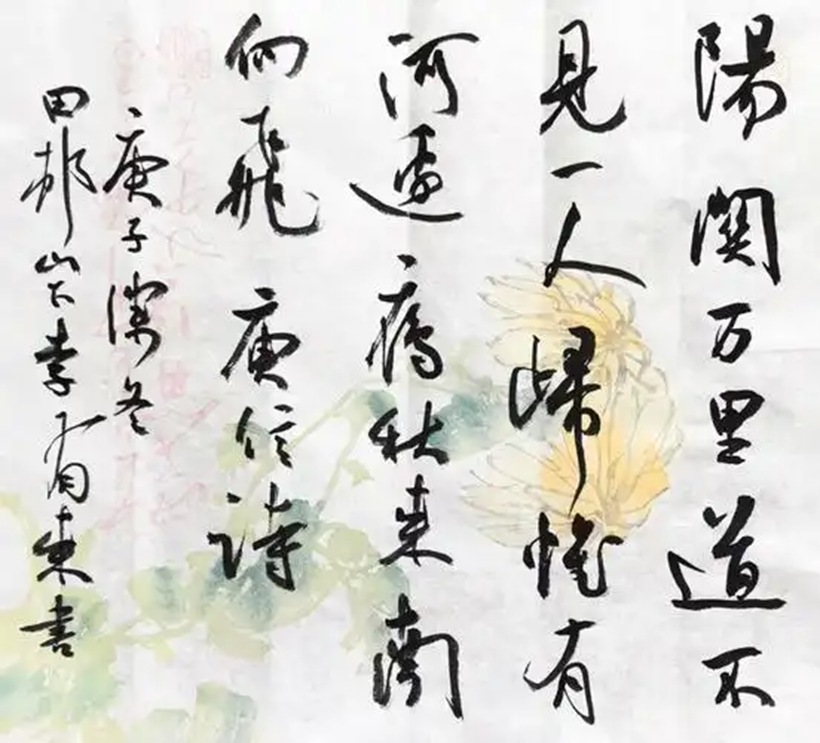 陽関万里道不
見一人歸惟有
河邊鴈秋来南
向飛 庾信詩
庚子深冬
田邨山下李来書